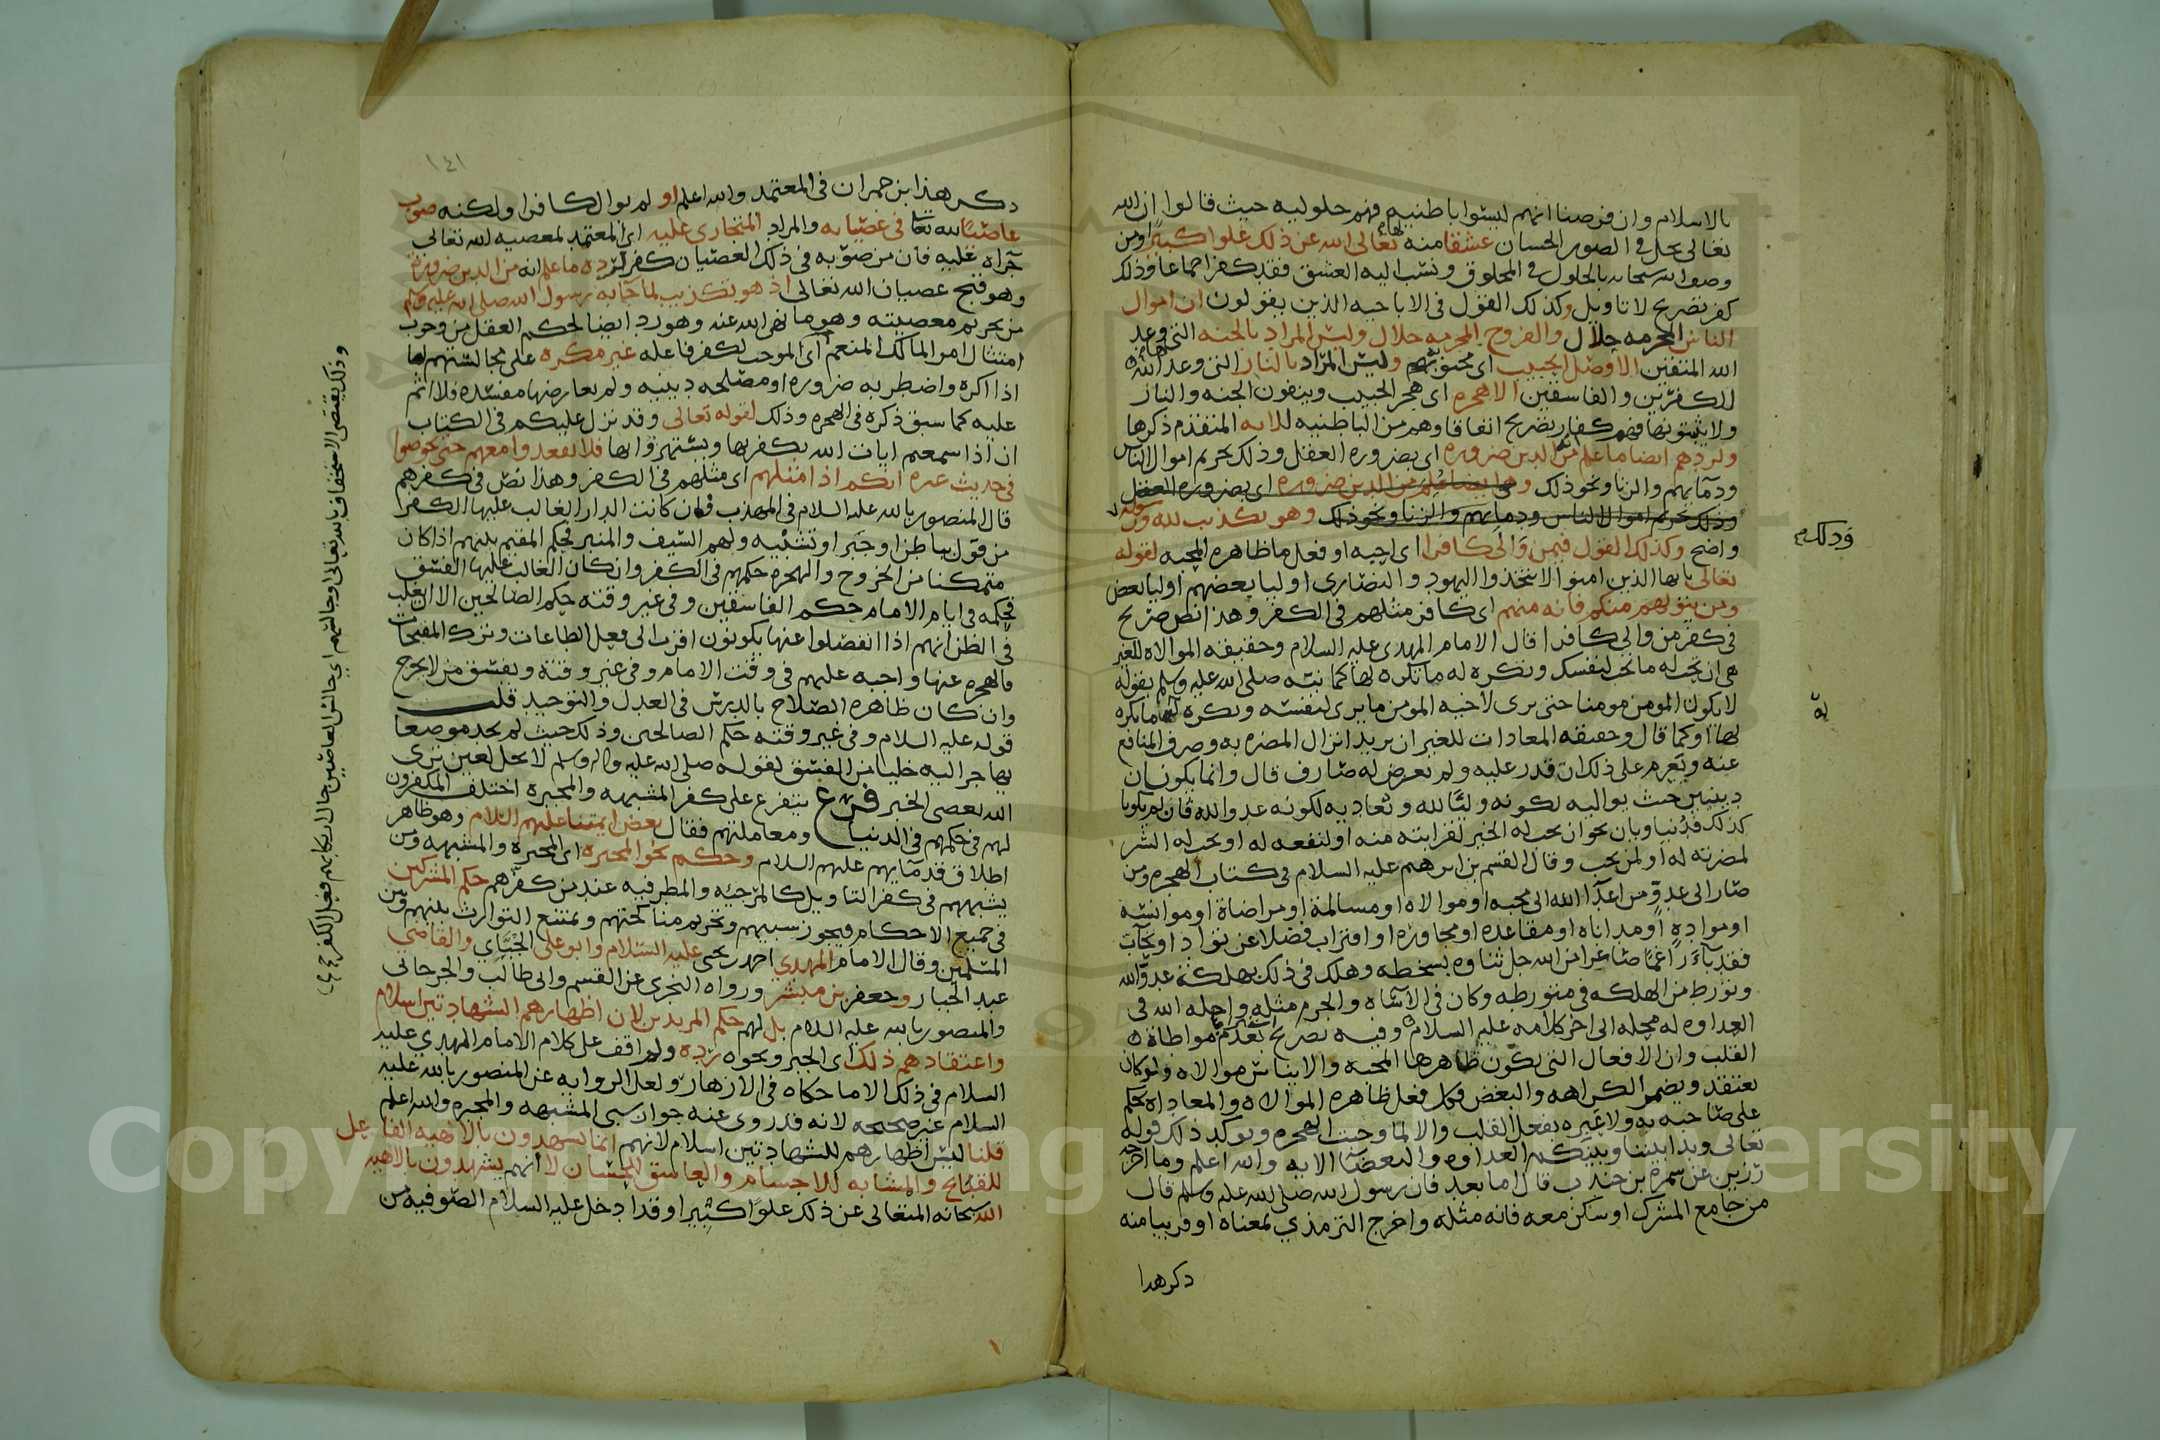 بالاسلام وان فرضنا انهم ليسوا باطنيه فهم حلوليه حيث قالوا ان الله
تعالى يحل في الصور الحسان عشقا منه لها تعالى الله عن ذلك علوا كبيرا ومن
وصف الله سبحانه بالحلول في المخلوق ونسب اليه العشق فقد كفر اجماعا وذلك
كفر تصريح لا تاويل وكذلك القول في الاباحيه الذين يقولون ان اموال
الناس المحرمه حلال والفروج المحرمه حلال وليس المراد بالجنه التي وعد
الله المتقين الا وصل الحبيب اي محبوبهم وليس المراد بالنار التي وعد الله
للكفرين والفاسقين الا هجره اي هجر الحبيب وينفون الجنه والنار
ولا يثبتونها فهم كفار تصريح اتفاقا وهم من الباطنيه للايه المتقدم ذكرها
ولردهم ايضا ما علم من الدين ضروره اي بضروره العقل وذلك تحريم اموال الناس
ودمائهم والزنا ونحو ذلك وما ايضا علم من الدين ضروره اي بضروره العقل
وذلك تحريم اموال الناس ودمائهم والزنا ونحو ذلك وهو تكذيب لله ورسوله
وذلك
واضح وكذلك القول فيمن والى كافرا اي احبه او فعل ما ظاهره المحبه لقوله
تعالى يايها الذين امنوا لا تتخذوا اليهود والنصارى اوليا بعضهم اوليا بعض
ومن يتولهم منكم فانه منهم اي كافر مثلهم في الكفر وهذا نص صريح
في كفر من والى كافرا قال الامام المهدي عليه السلام وحقيقه الموالاه للغير
هي ان تحب له ما تحب لنفسك وتكره له ما تكره لها كما نبه صلى الله عليه وسلم بقوله
لا يكون المومن مومنا حتى يرى لاخيه المومن ما يرى لنفسه ويكره له ما يكره
لها او كما قال وحقيقه المعادات للغير ان يريد انزال المضره به وصرف المنافع
عنه ويعزم على ذلك ان قدر عليه ولم يعرض له صارف قال وانما يكونان
دينيين حيث يواليه لكونه وليا لله ويعاديه لكونه عدوا لله فان لم يكونا
كذلك فدنيا وبان نحو ان يحب له الخير لقرابته منه او لنفعه له او يحب له الشر
لمضرته له او لمن يحب وقال القسم بن ابرهيم عليه السلام في كتاب الهجره ومن
صار الى عدو من اعداء الله الى محبه او موالاه او مسالمة او مراضاة او موانسه
او موادة او مداناه او مقاعده او مجاوره او اقتراب فضلا عن تواد او تحاب
فقد باء راغما صاغرا من الله جل ثناوه بسخطه وهلك في ذلك بهلكة عدو الله
وتورط من الهلكه في متورطه وكان في الاساه والجرم مثله واحله الله في
العداوه له محله الى اخر كلامه عليه السلام وفيه تصريح بعدم مواطاة
القلب وان الافعال التي يكون ظاهرها المحبه والايناس موالاه ولو كان
يعتقد ويضمر الكراهه والبغض فكل فعل ظاهره الموالاه والمعاداه حكم
على صاحبه به ولا عبره بفعل القلب والا لما وجبت الهجره ويوكد ذلك قوله
تعالى وبدا بيننا وبينكم العداوه والبغضا الايه والله اعلم وما اخرجه
رزين عن سمرة بن جندب قال اما بعد فان رسول الله صلى الله عليه وسلم قال
من جامع المشرك او سكن معه فانه مثله واخرج الترمذي بمعناه او قريبا منه
ذكر هذا
١٤١
ذكر هذا ابن حمران في المعتمد والله اعلم او لم يوال كافرا ولكنه صوب
عاصيا لله تعالى في عصيانه والمراد المتجاري عليه اي المعتمد لمعصيه الله تعالى
جراه عليه فان من صوبه في ذلك العصيان كفر لرده ما علم انه من الدين ضروره
وهو قبح عصيان الله تعالى اذ هو تكذيب لما جا به رسول الله صلى الله عليه وسلم
من تحريم معصيته وهو ما نهى الله عنه وهو رد ايضا لحكم العقل من وجوب
امتثال امر المالك المنعم اي الموجب لكفر فاعله غير مكره على مجالستهم اما
اذا اكره واضطر به ضروره او مصلحه دينيه ولم يعارضها مفسده فلا اثم
عليه كما سبق ذكره في الهجره وذلك لقوله تعالى وقد نزل عليكم في الكتاب
ان اذا سمعتم ايات الله يكفر بها ويستهزا بها فلا تقعدوا معهم حتى يخوضوا
في حديث غيره انكم اذا مثلهم اي مثلهم في الكفر وهذا نص في كفرهم
قال المنصور بالله عليه السلام في المهذب فان كانت الدار الغالب عليها الكفر
من قول بباطن او جبر او تشبيه ولهم السيف والمنبر فحكم المقيم بينهم اذا كان
متمكنا من الخروج والهجره حكمهم في الكفر وان كان الغالب عليها الفسق
فحكمه في ايام الامام حكم الفاسقين وفي غير وقته حكم الصالحين الا ان يغلب
في الظن انهم اذا انفصلوا عنها يكونون اقرب الى فعل الطاعات وترك المقبحات
فالهجره عنها واجبه عليهم في وقت الامام وفي غير وقته ويفسق من لا يخرج
وان كان ظاهره الصلاح بالدرس في العدل والتوحيد قلت
قوله عليه السلام وفي غير وقته حكم الصالحين وذلك حيث لم يجد موضعا
يهاجر اليه خليا من الفسق لقوله صلى الله عليه واله وسلم لا يحل لعين ترى
الله يعصى الخبر فرع يتفرع على كفر المشبهه والمجبره اختلف المكفرون
لهم في حكمهم في الدنيا ومعاملتهم فقال بعض ايمتنا عليهم السلام وهو ظاهر
اطلاق قدمائهم عليهم السلام وحكم نحو المجبره اي المجبره والمشبهه ومن
يشبههم في كفر التاويل كالمرجئه والمطرفيه عند من كفرهم حكم المشركين
في جميع الاحكام فيجوز سبيهم وتحرم مناكحتهم ويمتنع التوارث بينهم وبين
المسلمين وقال الامام المهدي احمد بن يحيى عليه السلام وابو علي الجبائي والقاضي
عبد الجبار وجعفر بن مبشر ورواه النجري عن القسم وابي طالب والجرجاني
والمنصور بالله عليه السلام بل لهم حكم المرتدين لان اظهارهم الشهادتين اسلام
واعتقادهم ذلك اي الجبر ونحوه رده ولم اقف على كلام الامام المهدي عليه
السلام في ذلك الا ما حكاه في الازهار ولعل الروايه عن المنصور بالله عليه
السلام غير صحيحه لانه قد روى عنه جواز سبي المشبهه والمجبره والله اعلم
قلنا ليس اظهارهم للشهادتين اسلام لانهم انما يشهدون بالالهيه الفاعل
للقبائح والمشابه للاجسام والعاشق للحسان لا انهم يشهدون بالالهيه
الله سبحانه المتعالي عن ذلك علوا كبيرا وقد ادخل عليه السلام الصوفيه من
وذلك يقتضي الاستخفاف بالله تعالى او جالسهم اي جالس العاصين حال ارتكابهم فعل الكفر